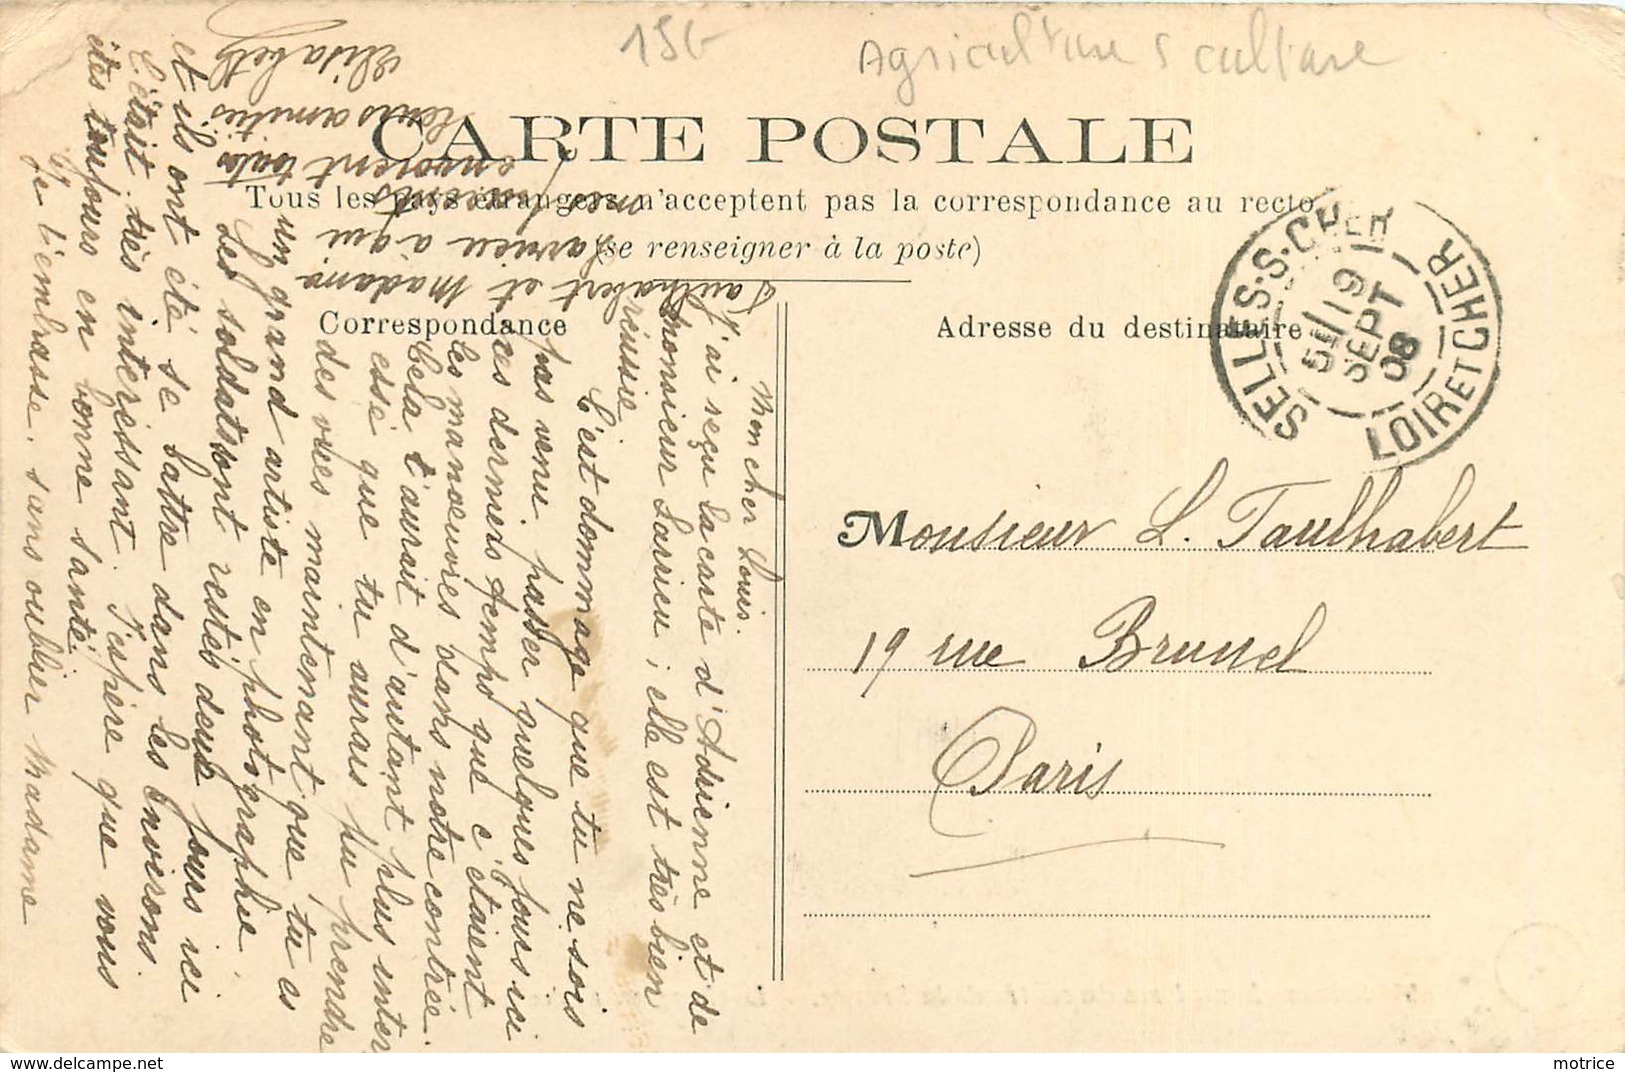 15€
Agriculture s culture
CARTE POSTALE
Tous les pays étrangers n'acceptent pas la correspondance au recto
(se renseigner à la poste)
Correspondance
Adresse du destinataire
SELLES-S-CHER
5E / 19
SEPT
08
LOIR ET CHER
Monsieur L. Taulhabert
19 rue Brunel
Paris
Mon cher Louis.
J'ai reçu la carte d'Adrienne et de
monsieur Larrieu ; elle est très bien
réussie
C'est dommage que tu ne sois
pas venu passer quelques jours ici
ces derniers temps que c'étaient
les manœuvres dans notre contrée.
Cela t'aurait d'autant plus inter
essé que tu aurais pu prendre
des vues maintenant que tu es
un grand artiste en photographie.
Les soldats sont restés deux jours ici
et ils ont été se battre dans les environs.
C'était très intéressant. J'espère que vous
êtes toujours en bonne santé.
Je t'embrasse. sans oublier Madame
Taulhabert et Madame
Larrieu à qui
mes parents
envoient toutes
leurs amitiés
Elisabeth
motrice